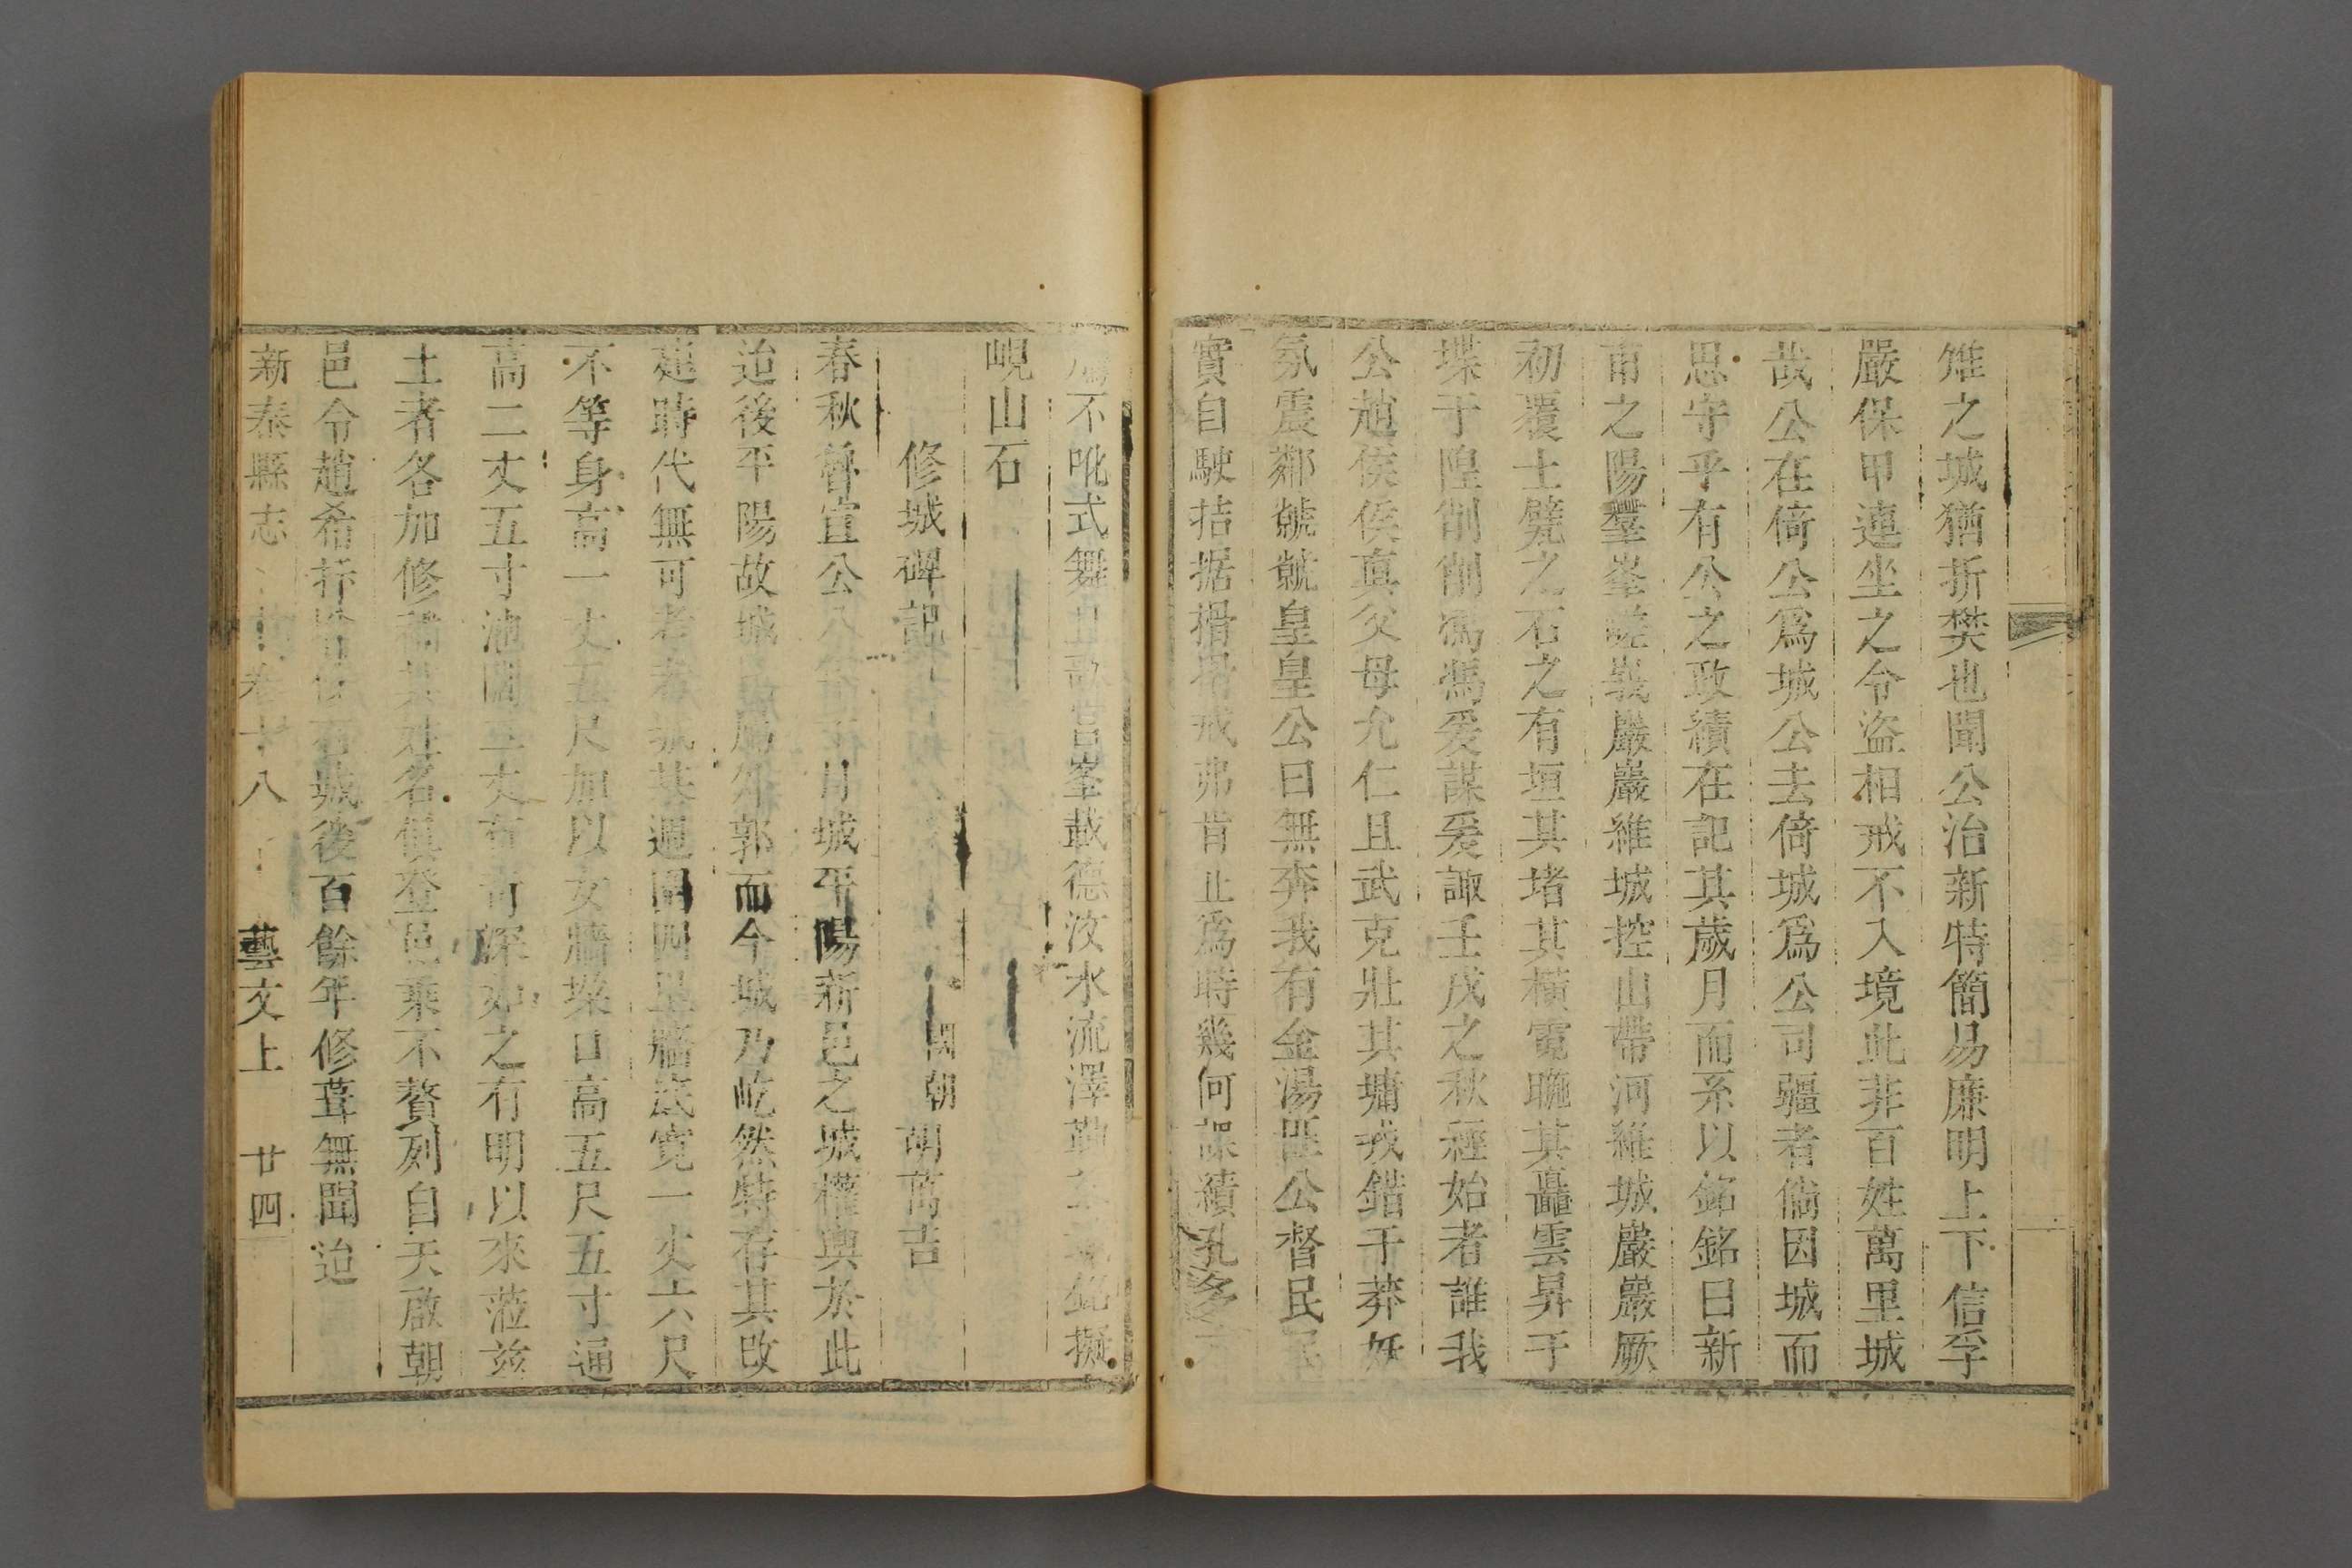 雉之城猶折樊也聞公治新特簡易廉明上下信孚
嚴保甲連坐之令盜相戒不入境此非百姓萬里城
哉公在倚公爲城公去倚城爲公司疆者倘因城而
思守乎有公之政績在記其歲月而系以銘銘曰新
甫之陽羣峯巖巖維城控山帶河維城巖巖厥
初覆土甓之石之有垣其堵其橫霓聯其矗雲昇于
堞于隍削削馮馮爰謀爰諏壬戌之秋經始者誰我
公趙侯侯真父母允仁且武克壯其墉戎錯于莽妖
氛震鄰虩虩皇皇公曰無奔我有金湯匪公督民民
實自駛拮据搰搰戒弗肯止爲時幾何課績孔多
不吪式舞且歌宮峯載德汶水流澤勒銘擬
峴山石
修城碑記 國朝 朝萬吉
春秋魯宣公八年 月城平陽新邑之城權輿於此
迨後平陽故城 外郭而今城乃屹然特存其改
建時代無可考 城基週圍四里牆底寬一丈六尺
不等身高一丈五尺加以女牆垛口高五尺五寸通
高二丈五寸池闊二丈有奇深如之有明以來蒞茲
土者各加修 其姓名俱登邑乘不贅列自天啟朝
邑令趙希抃 城後百餘年修葺無聞迨
新泰縣志 卷十八 藝文上 廿四